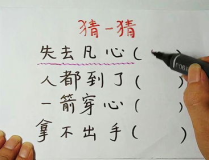 猜一猜
失去凡心( )
人都到了( )
一箭穿心( )
拿不出手( )